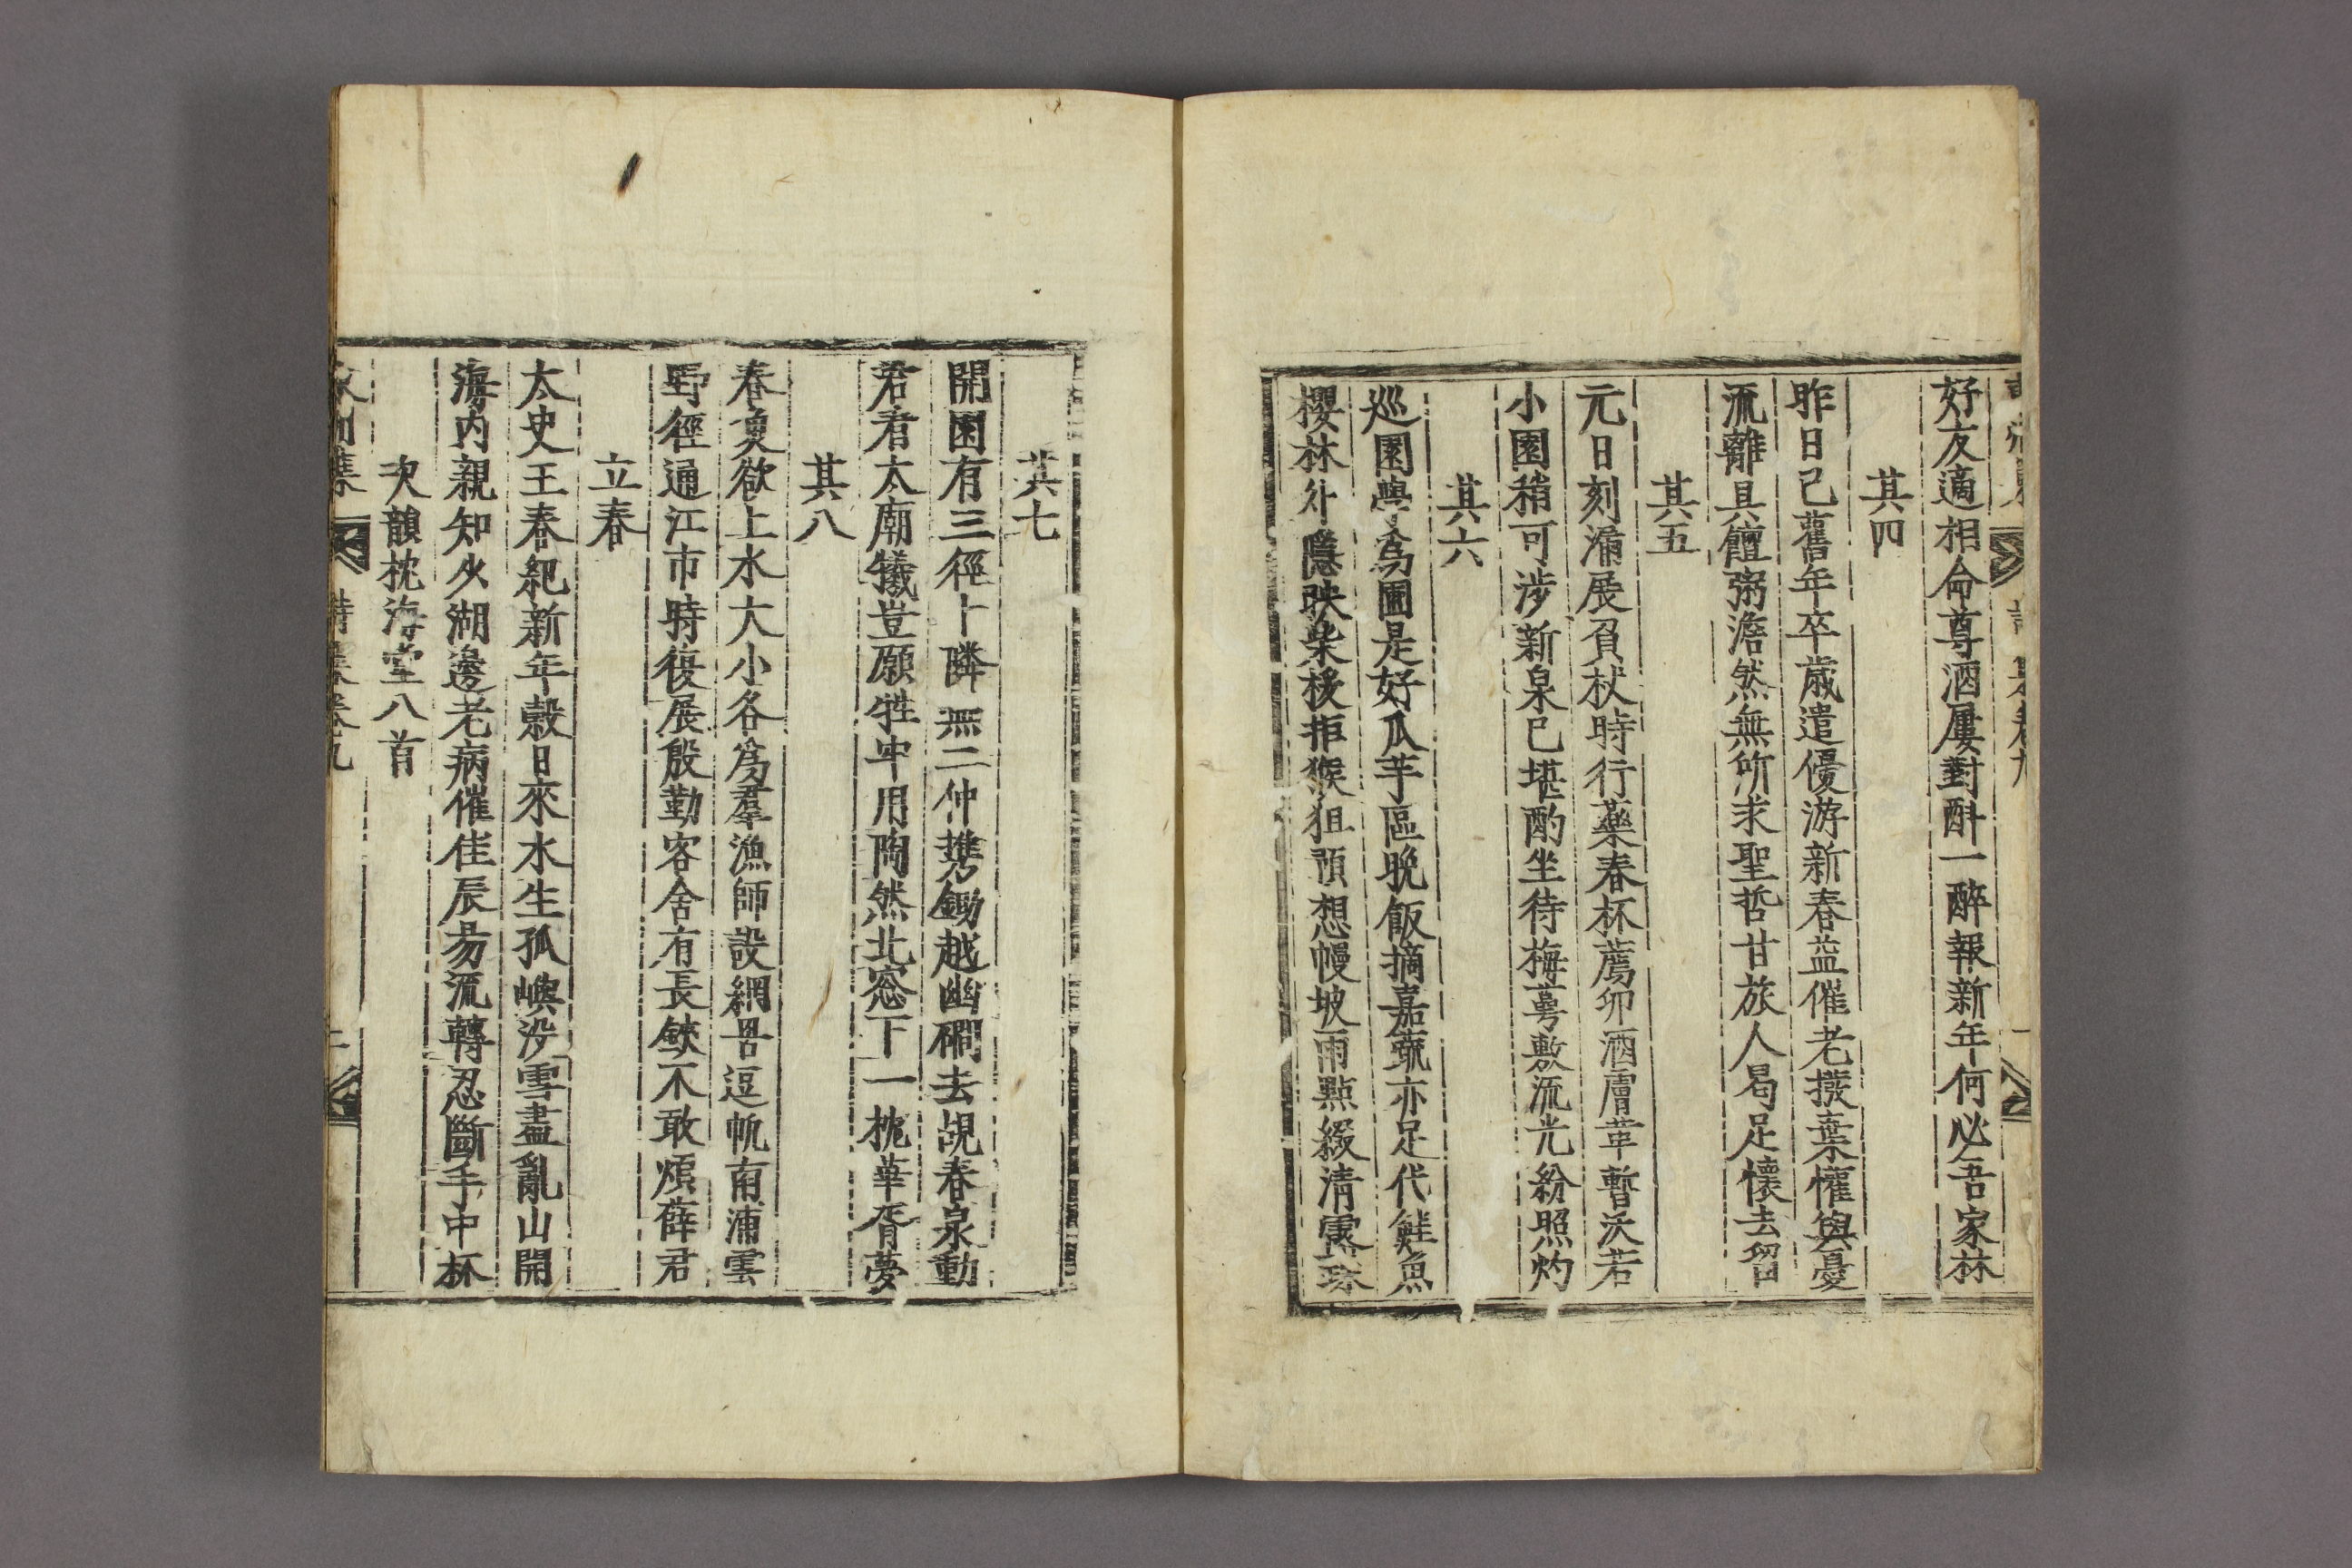 好友適相命尊酒屢對酙一醉報新年何必吾家林
其四
昨日已舊年卒歲遣優游新春益催老撥棄懽與憂
流離具饘粥澹然無所求聖哲甘旅人曷足懷去留
其五
元日刻漏展負杖時行藥春杯薦卯酒膚革暫沃若
小園稍可涉新泉已堪酌坐待梅萼敷流光紛照灼
其六
巡園學爲圃是好瓜芋區晩飯摘嘉蔬亦足代鮭魚
櫻林外隱映柴援拒猴狙預想幔坡雨點綴清露珠
其七
開園有三徑卜隣無二仲携鋤越幽磵去覘春泉動
君看太廟犧豈願牲牢用陶然北窓下一枕華胥夢
其八
春魚欲上水大小各爲羣漁師設網罟逗帆南浦雲
野徑通江市時復展殷勤客舍有長鋏不敢煩薛君
立春
太史王春紀新年穀日來水生孤嶼沒雪盡亂山開
海內親知少湖邊老病催佳辰易流轉忍斷手中杯
次韻枕海堂八首
詩集卷九